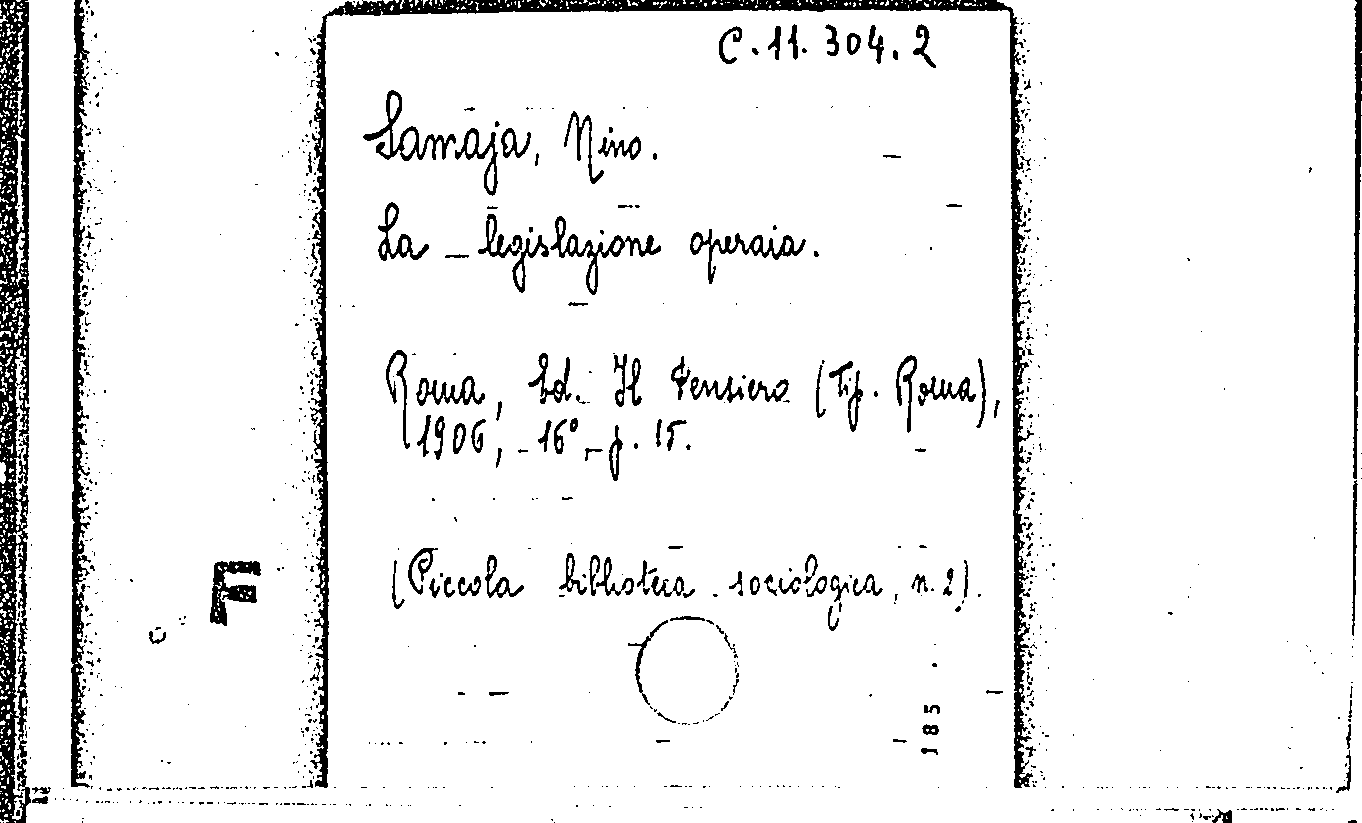 C.11.304.2
Samaja, Nino.
La legislazione operaia.
Roma, Ed. Il Pensiero (Tip. Roma),
1906, 16°, p. 15.
(Piccola biblioteca sociologica, n. 2).
185
F